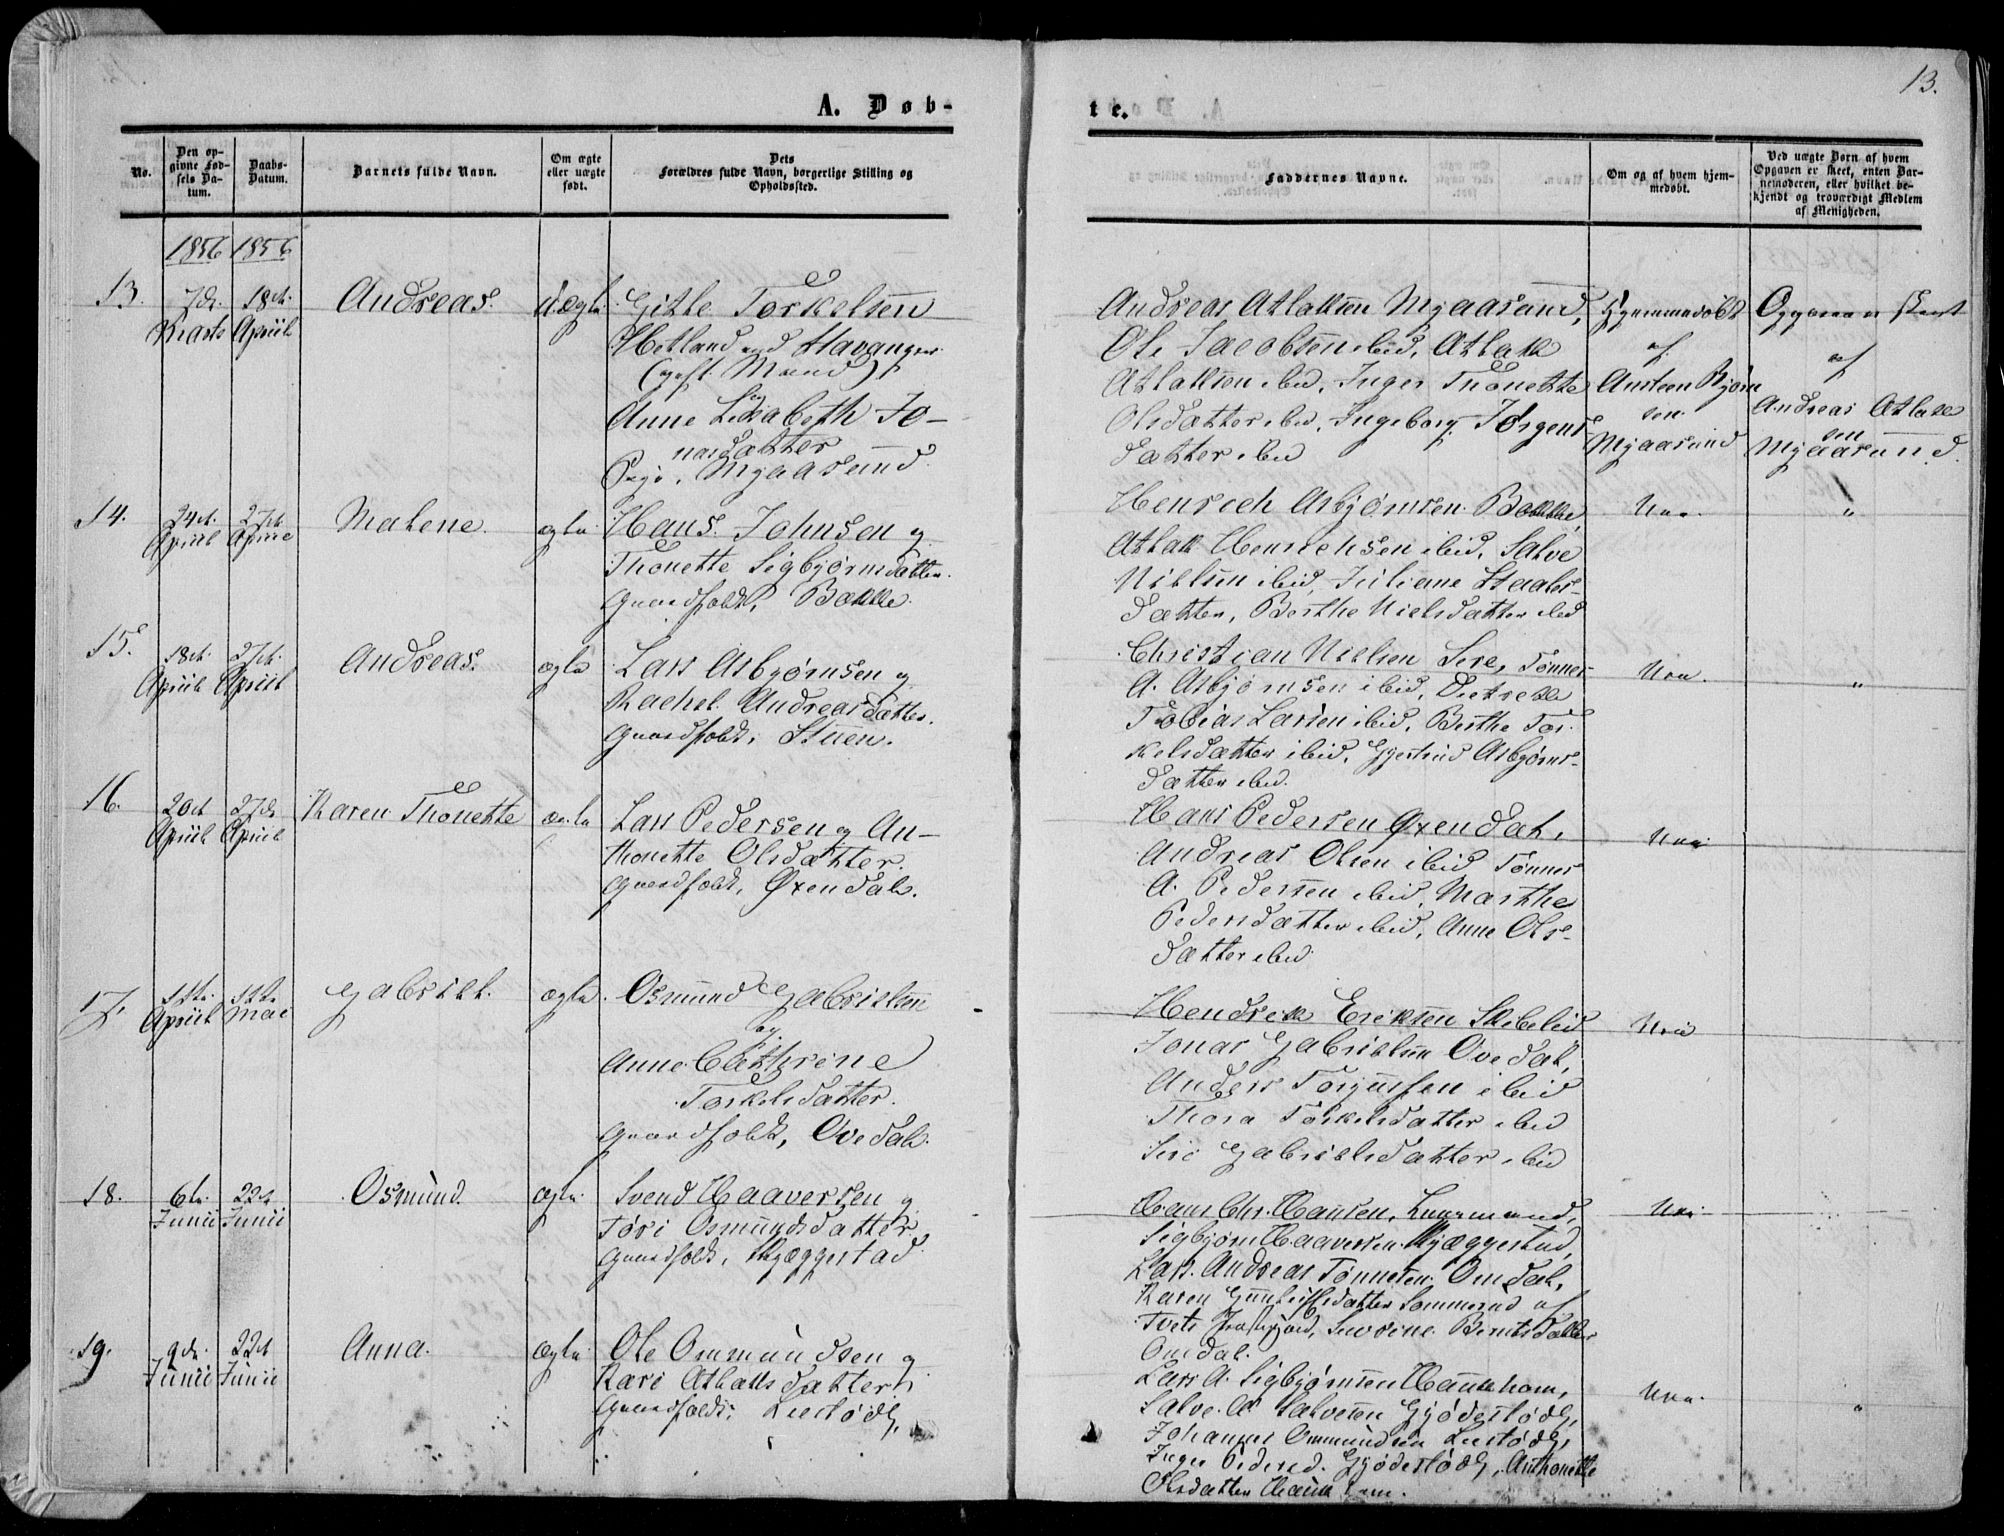 13.
A. Døb-
te.
No.
Den op-
givne Fød-
sels Da-
tum.
Daabs-
Datum.
Barnets fulde Navn.
Om ægte
eller uægte
født.
Dets
Forældres fulde Navn, borgerlige Stilling og
Opholdssted.
Faddernes Navne.
Om og af hvem hjem-
medøbt.
Ved uægte Børn af hvem
Opgaven er skeet, enten Bar-
nemoderen, eller hvilket be-
kjendt og troværdigt Medlem
af Menigheden.
1856 1856
13.
7de
Marts
18de
April
Andreas.
Uægte
Gitle Torkelsen
Hetland ved Stavanger
(gift Mand)
Anne Elisabeth Jo-
nasdatter
Pige, Mgaasund.
Andreas Atlaksen Mgaasund,
Ole Jacobsen ibid, Atlak
Atlaksen ibid, Inger Thonette
Olsdatter ibid, Ingeborg Jørgens-
datter ibid
Hjemmedøbt
af
Austeen Bjørn
sen
Mgaasund
Opgaven skeet
af
Andreas Atlak
sen
Mgaasund.
14.
24de
April
27de
April
Malene.
ægte
Hans Johnsen og
Thonette Sigbjørnsdatter.
Gaardfolk, Bakke.
Henrich Asbjørnsen Bakke,
Atlak Henrichsen ibid, Salve
Nielsen ibid, Juliane Staals-
datter, Berthe Nielsdatter ibid
Nei.
"
15.
18de
April
27de
April
Andreas.
ægte
Lars Asbjørnsen og
Rachel Andreasdatter.
Gaardfolk, Stuen.
Christian Nielsen Sire, Tønnes
A. Asbjørnsen ibid,
Tobias Larsen ibid, Berthe Tor-
kelsdatter ibid, Gjertrud Asbjørns-
datter ibid.
Nei.
"
16.
20de
April
27de
April
Karen Thonette
ægte
Lars Pedersen og An-
thonette Olsdatter.
Gaardfolk, Øxendal.
Hans Pedersen Øxendal,
Andreas Olsen ibid Tønnes
A. Pedersen ibid, Marthe
Pedersdatter ibid, Anne Ols-
datter ibid
Nei
17.
11te
April
1ste
Mai
Gabriel.
ægte.
Osmund Gabrielsen
og
Anne Cathrine
Torkelsdatter.
Gaardfolk, Ovedal.
Hendrik Eriksen Skibelid
Jonas Gabrielsen Ovedal,
Anders Torgussen ibid
Thora Torkelsdatter ibid
Siri Gabrielsdatter ibid
Nei
18.
6te
Junii
22de
Junii
Osmund.
ægte.
Svend Haaversen og
Tori Osmundsdatter.
Gaardfolk, Skjæggestad
Hans Chr. Hansen, Lunsmand,
Sigbjørn Haaversen Skjæggestad,
Lars Andreas Tønnesen Omdal,
Karen Sommerud af
Tvets Præstegjeld, Severine Berntsdatter
Omdal.
Nei
19.
9de
Junii
22de
Junii
Anna.
ægte
Ole Ommundsen og
Kari Atlaksdatter
Gaardfolk, Liestøel,
Lars A. Sigbjørnsen Haukhom,
Salve A. Salvesen Gjødestøel,
Johannes Ommundsen Liestøel,
Inger Pedersd. Gjødestøel, Anthonette
Olsdatter Haukhom.
Nei.
"